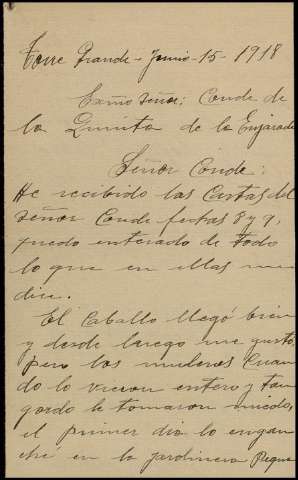 Torre Grande - Junio - 15 - 1918
Exmo Señor: Conde de
la Quinta de la Enjarada
Señor Conde:
He recibido las Cartas del
Señor Conde fechas 8 y 9,
quedo enterado de todo
lo que en ellas me
dice.
El Caballo llegó bien
y desde luego me gustó,
pero los muleros Cuan-
do lo vieron entero y tan
gordo le tomaron miedo,
el primer dia lo engan-
ché en la jardinera